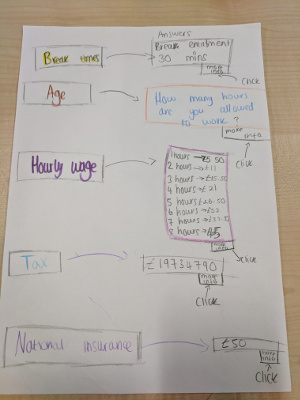 Answers
Break times
Break entitlement
30 mins
more info
click
Age
How many hours
are you allowed
to work?
more info
click
Hourly wage
1 hours → £5.50
2 hours → £11
3 hours → £16.50
4 hours → £21
5 hours £26.50
6 hours → £32
7 hours → £37.50
8 hours → £45
more info
click
Tax
£19734790
more info
click
National insurance
£50
more info
click